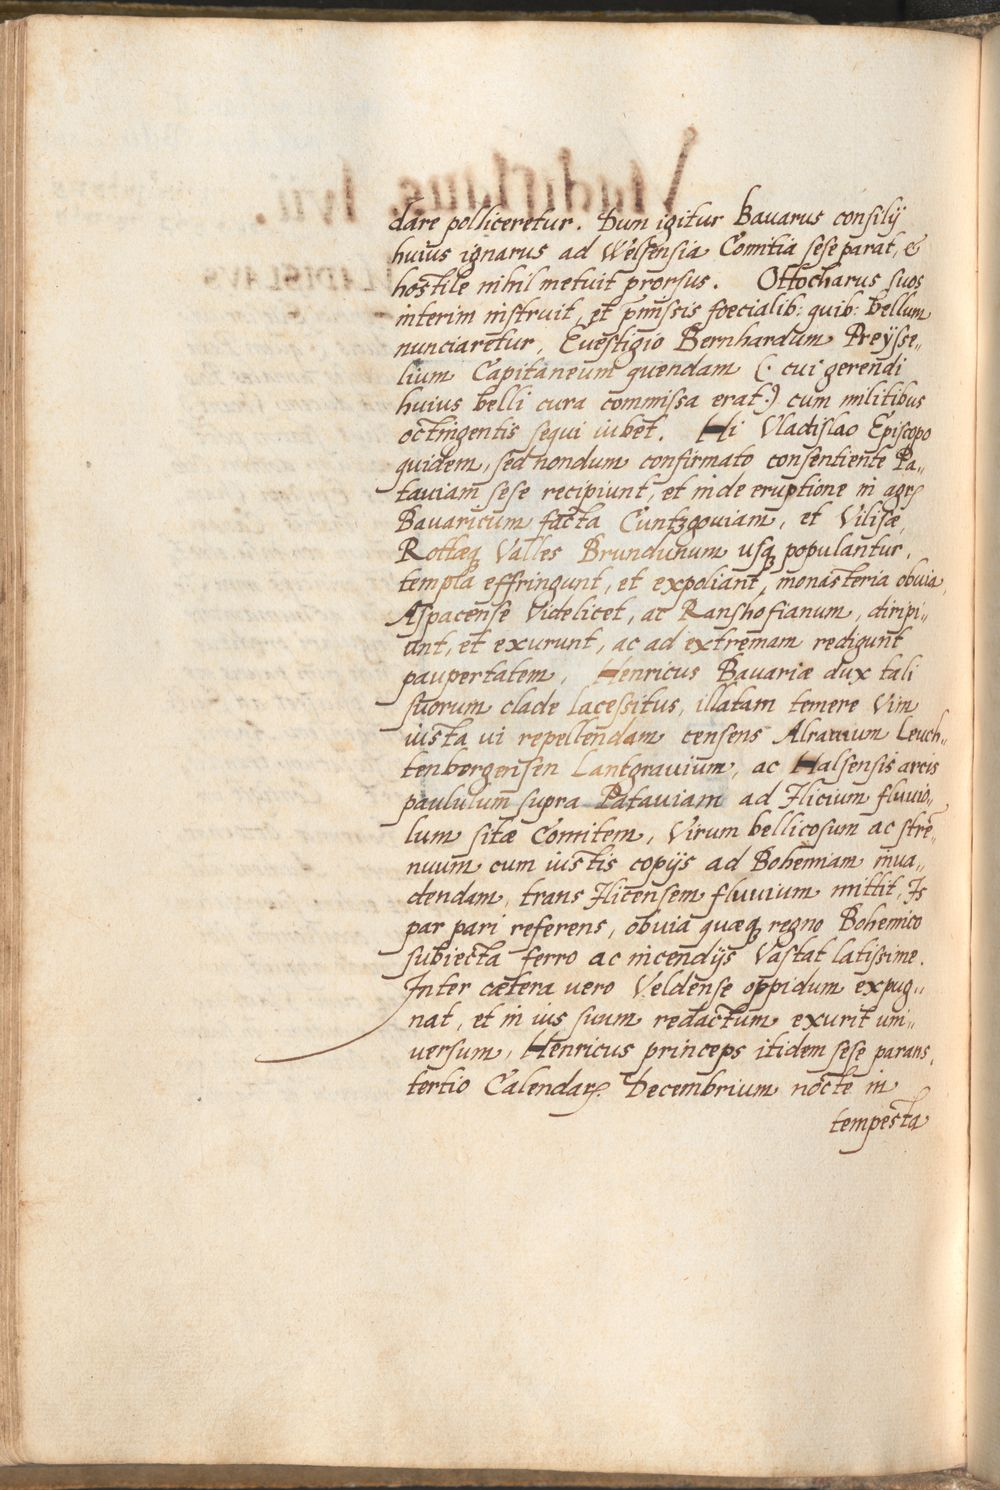 dare polliceretur. Dum igitur Bavarus consilij
huius ignarus ad Welsensia Comitia sese parat, &
hostile nihil metuit prorsus. Ottocharus suos
interim instruit, et praemissis foecialib: quib: bellum
nunciaretur, Evestigio Bernhardum Preÿsse„
lium Capitaneum quendam (· cui gerendi
huius belli cura commissa erat·) cum militibus
octingentis sequi iubet. Hi Vladislao Episcopo
quidem, sed nondum confirmato consentiente Pa„
taviam sese recipiunt, et inde eruptione in agrȝ
Bavaricum facta Cuntzgoviam, et Vilisæ,
Rottæq; Valles Brundunum usq; populantur,
templa effringunt, et expoliant, monasteria obvia,
Aspacense Videlicet, ac Ranshofianum, diripi„
unt, et exurunt, ac ad extremam redigunt
paupertatem, Henricus Bavariæ dux tali
suorum clade lacessitus, illatam temere Vim
iusta ui repellendam censens Alramum Leuch„
tenbergensen Lantgravium, ac Halsensis arcis
paululum supra Pataviam ad Ilicium fluvio„
lum sitæ Comitem, Virum bellicosum ac stre„
nuum cum iustis copijs ad Bohemiam inva„
dendam, trans Ilicensem fluvium mittit, Is
par pari referens, obvia quæq; regno Bohemico
subiecta ferro ac incendijs Vastat latissime.
Inter cætera vero Veldense oppidum expug„
nat, et in ius suum redactum exurit uni„
versum, Henricus princeps itidem sese parans,
tertio Calendarȝ Decembrium nocte in
tempesta